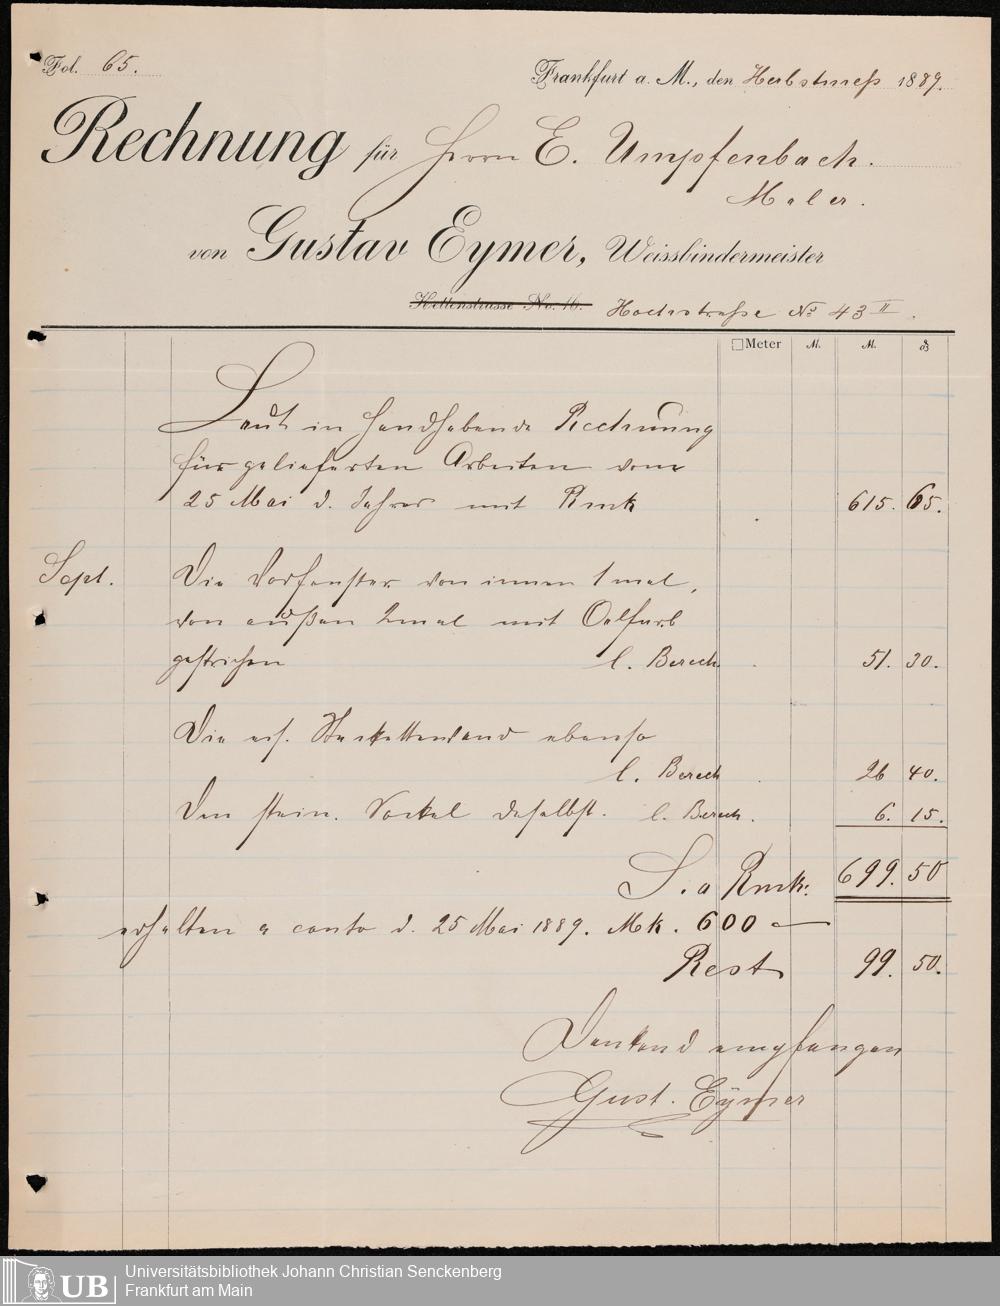 Fol. 65.
Frankfurt a. M., den Herbstmeß 1889.
Rechnung für Herrn E. Umpfenbach.
Maler.
von Gustav Eymer, Weissbindermeister
Hochstraße No 43 II.
□Meter M. M. ₰
Laut in Handhabende Rechnung
für gelieferten Arbeiten vom
25 Mai d. Jahres mit Rmk 615. 65.
Sept. Die Vorfenster von innen 1 mal,
von außen 2mal mit Oelfarb
gestrichen l. Berech. 51. 30.
Die Stackettenwand ebenso
l. Berech 26 40.
Den stein. Sockel daselbst. l. Berech. 6. 15.
S. a Rmk. 699. 50
erhalten a conto d. 25 Mai 1889. Mk. 600 —
Rest 99. 50.
Dankend empfangen
Gust. Eymer
UB
Universitätsbibliothek Johann Christian Senckenberg
Frankfurt am Main